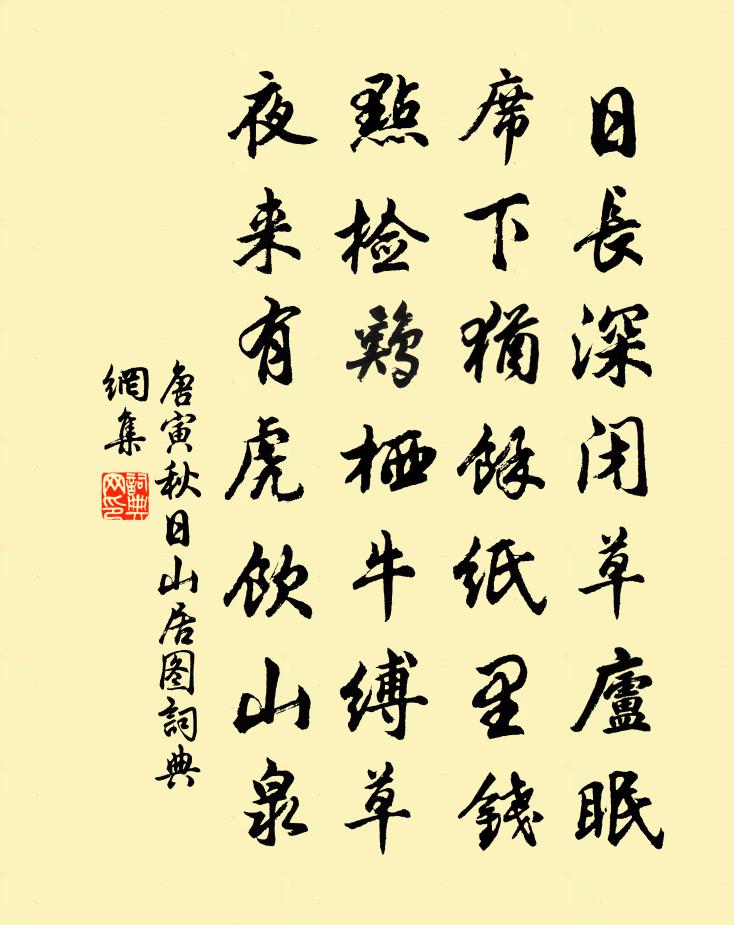 日長深闭草廬眠
席下猶餘紙里錢
點检鷄栖牛縛草
夜来有虎飲山泉
唐寅秋日山居图詞典
網集
詞典
网印